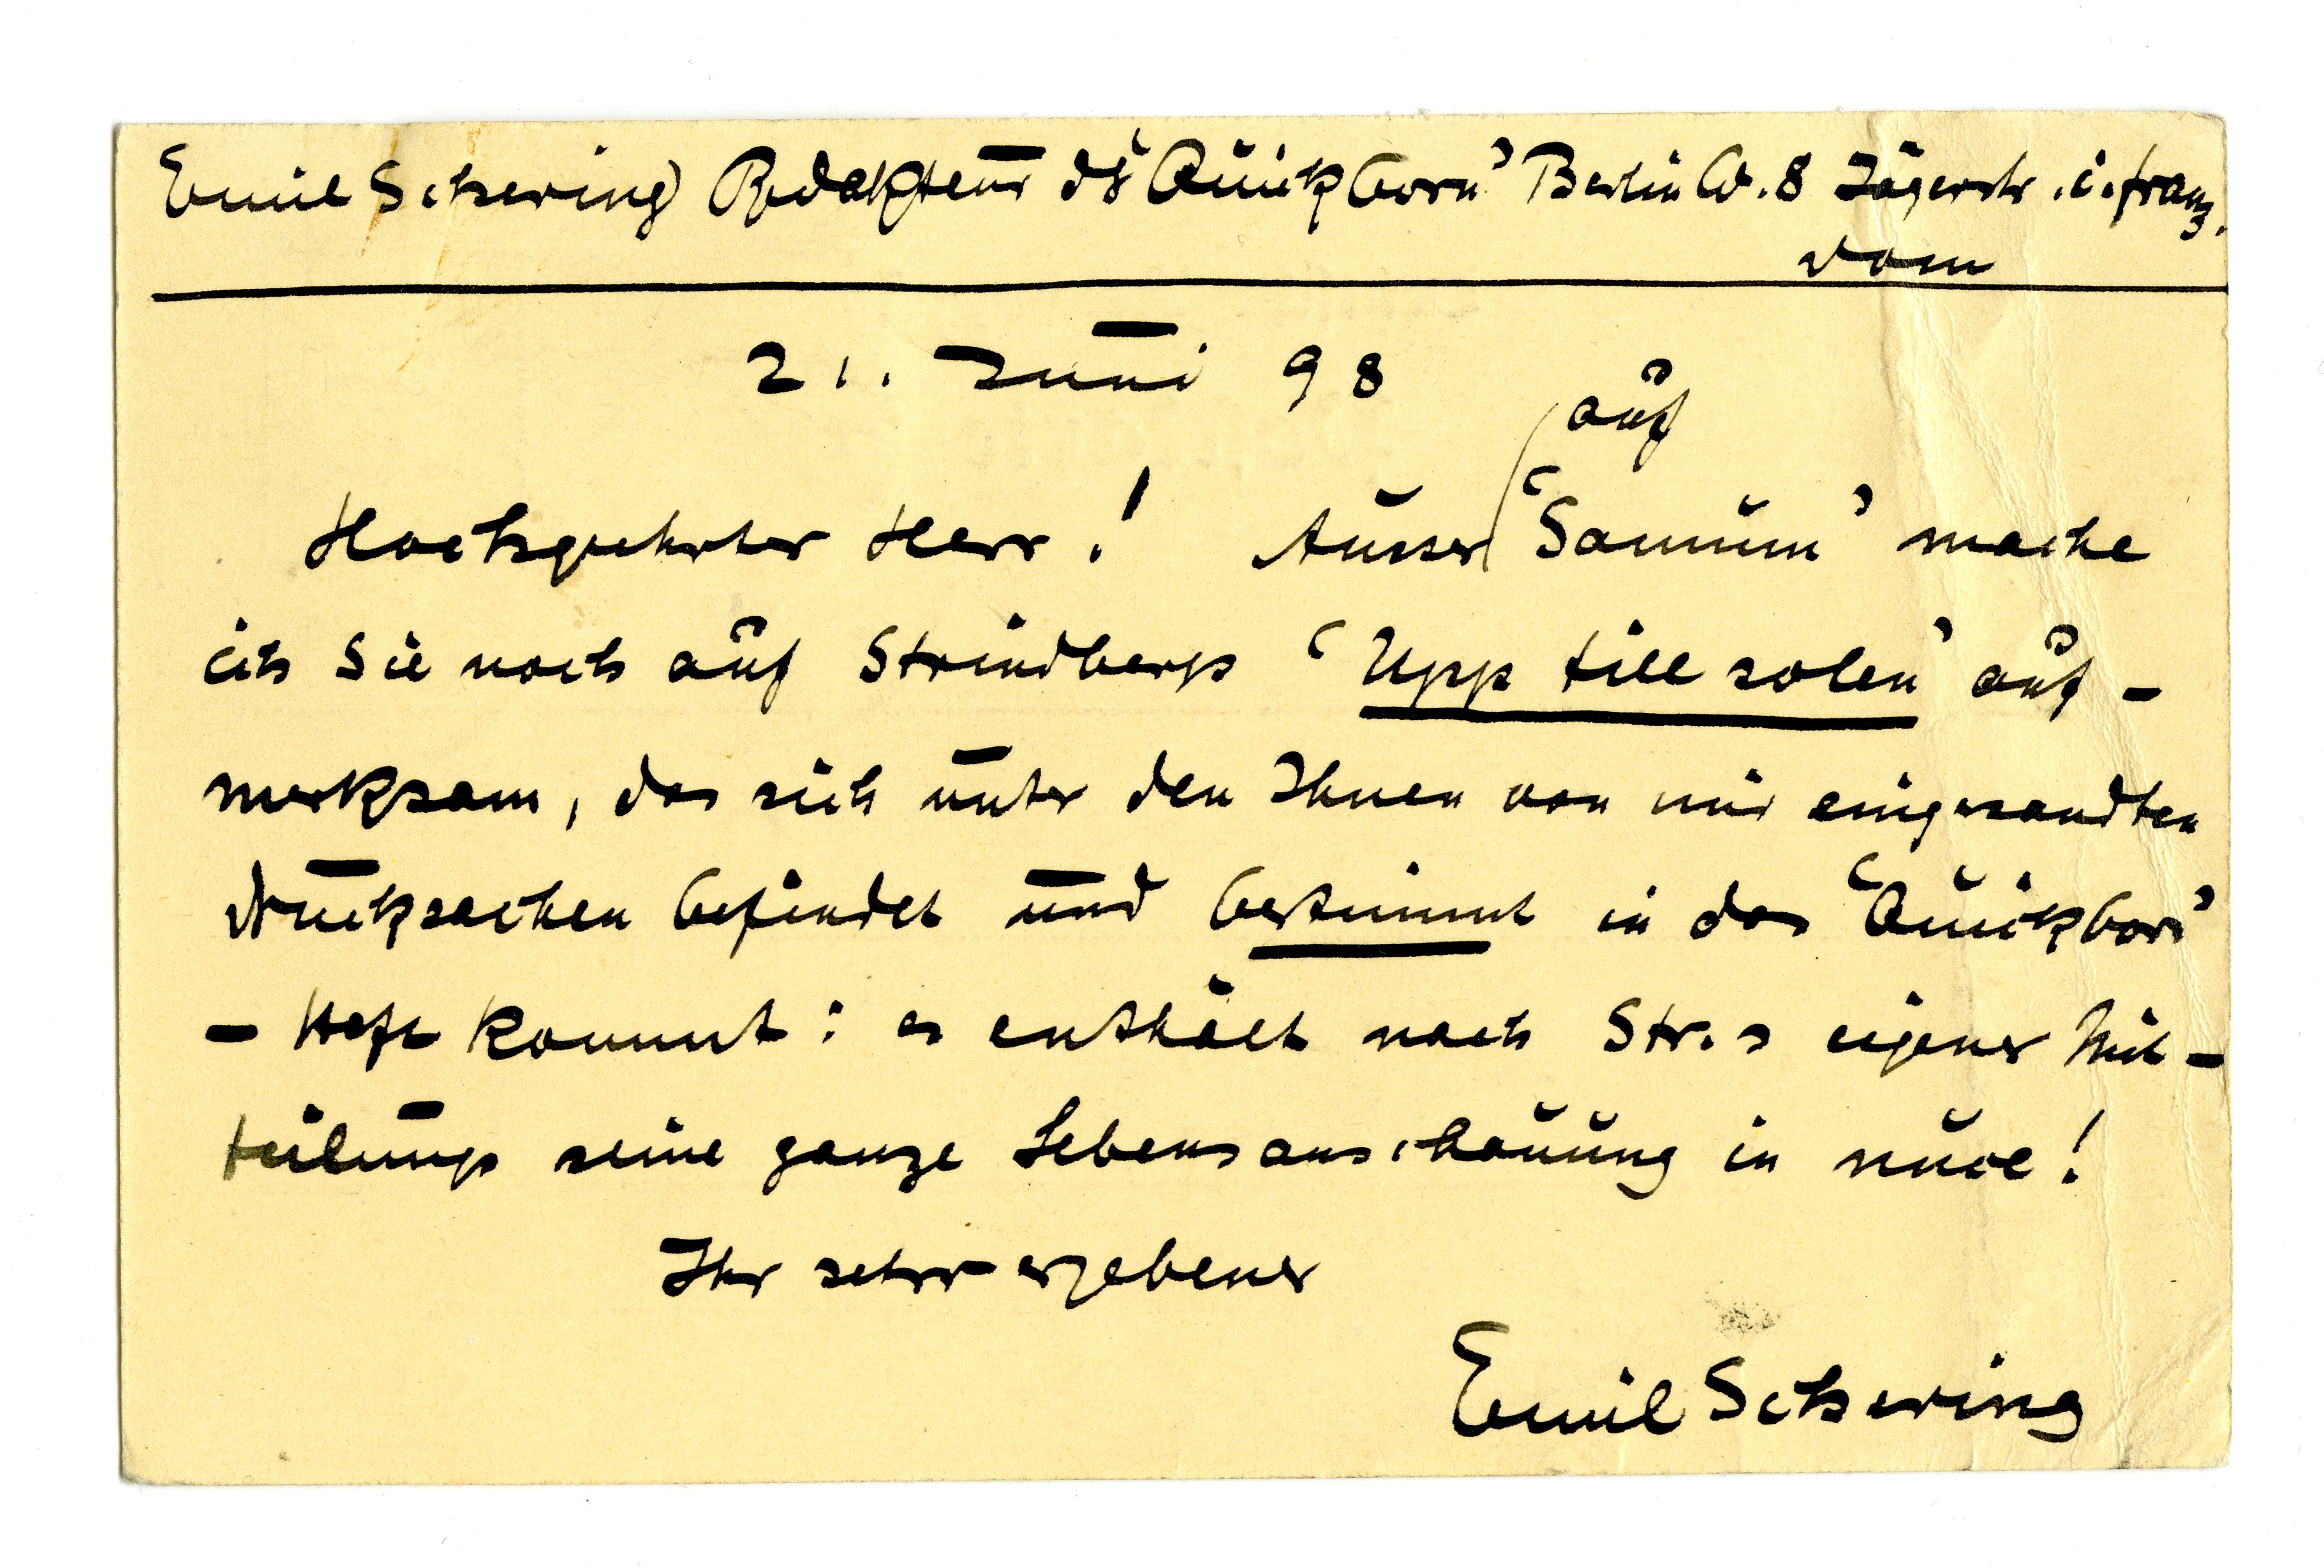 Emil Schering Redakteur ds 'Quickborn' Berlin W. 8 Jägerstr. i. franz.
Dom
21. Juni 98
auf
Hochgeehrter Herr! Ausser 'Samum' mache
ich Sie noch auf Strindbergs 'Upp till solen' auf-
merksam, das sich unter den Ihnen von mir eingesandten
Drucksachen befindet und bestimmt in das 'Quickborn'
- Heft kommt: es enthält nach Str.s eigener Mit-
teilung seine ganze Lebensanschauung in nuce!
Ihr sehr ergebener
Emil Schering